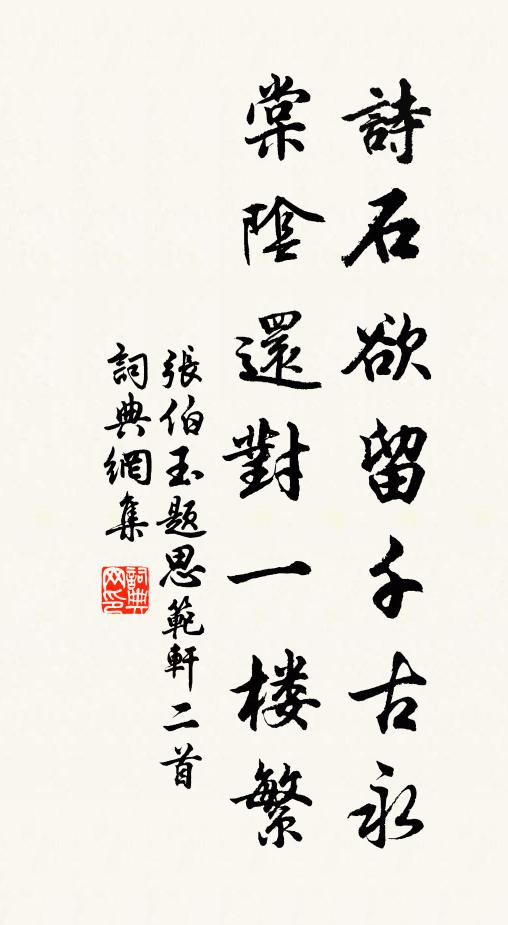 詩石欲留千古永
棠陰還對一楼繁
張伯玉題思範軒二首
詞典網集
詞典
网印